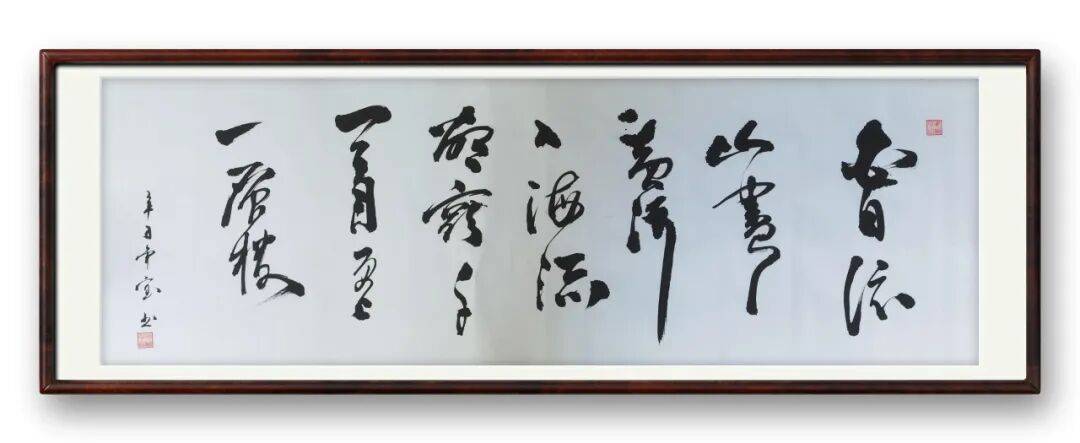 白日依
山盡
黄河
入海流
欲窮千
里目更上
一層楼
辛丑 书